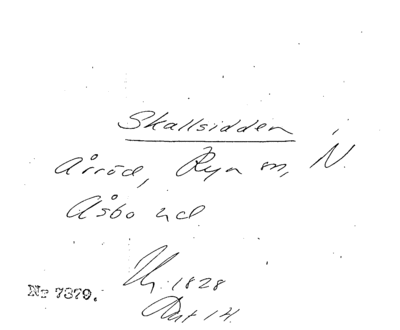 Skallsidden
Årröd, Ryn m, N.
Åsbo hd
1828
14.
Nr 7379.